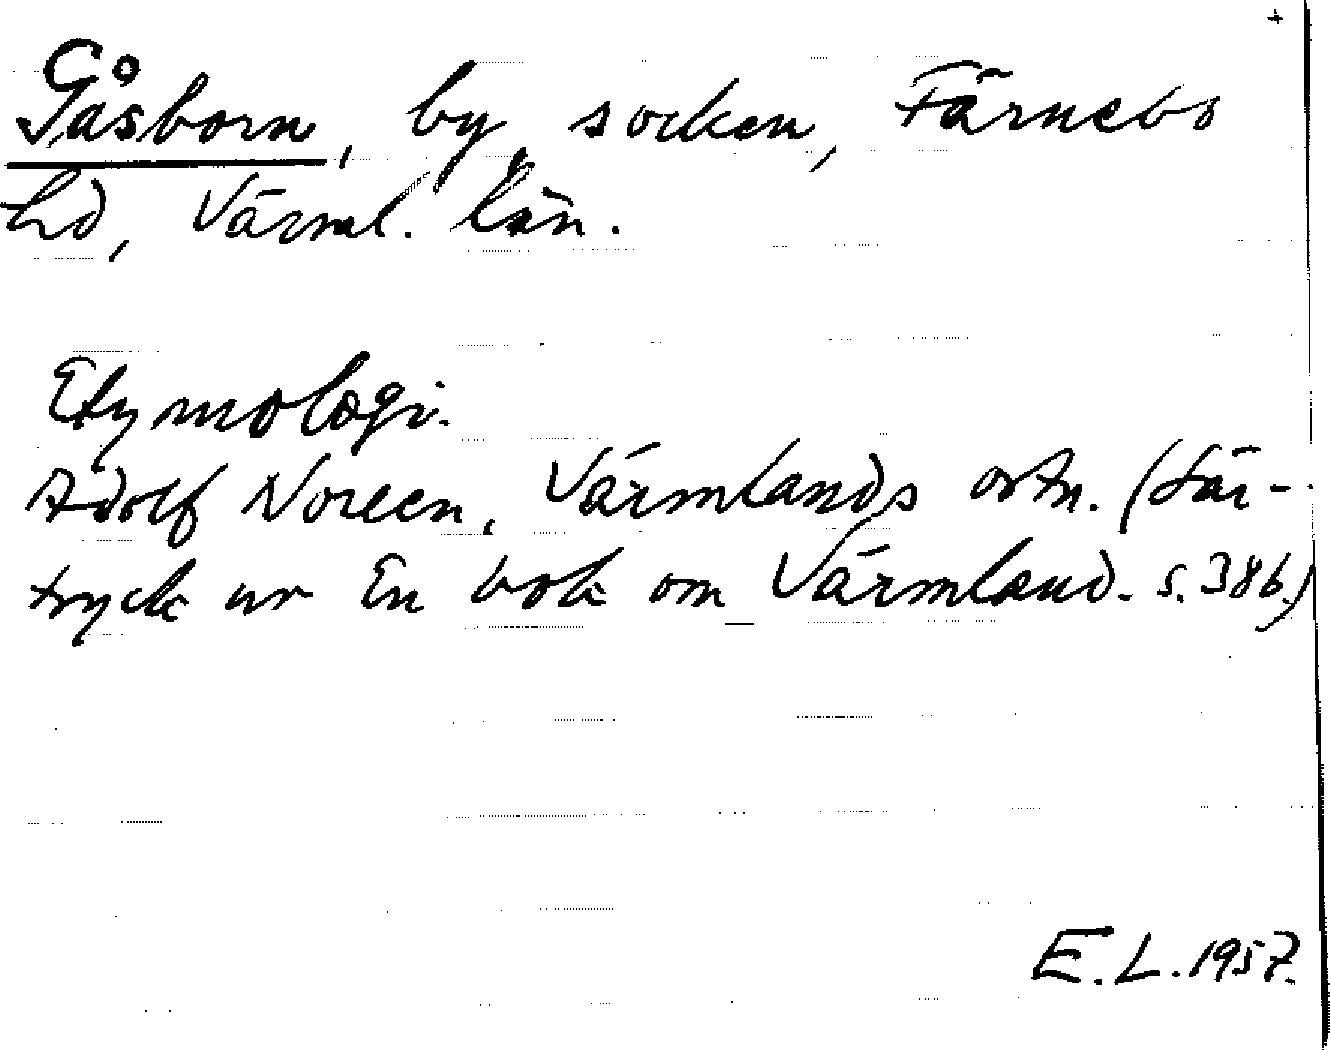 +
Gåsborn, by, socken, Färnebo
hd, Värml. län.
Etymologi.
Adolf Noreen, Värmlands ortn. (Sär-
tryck ur En bok om Värmland. s. 386.)
E.L. 1957.